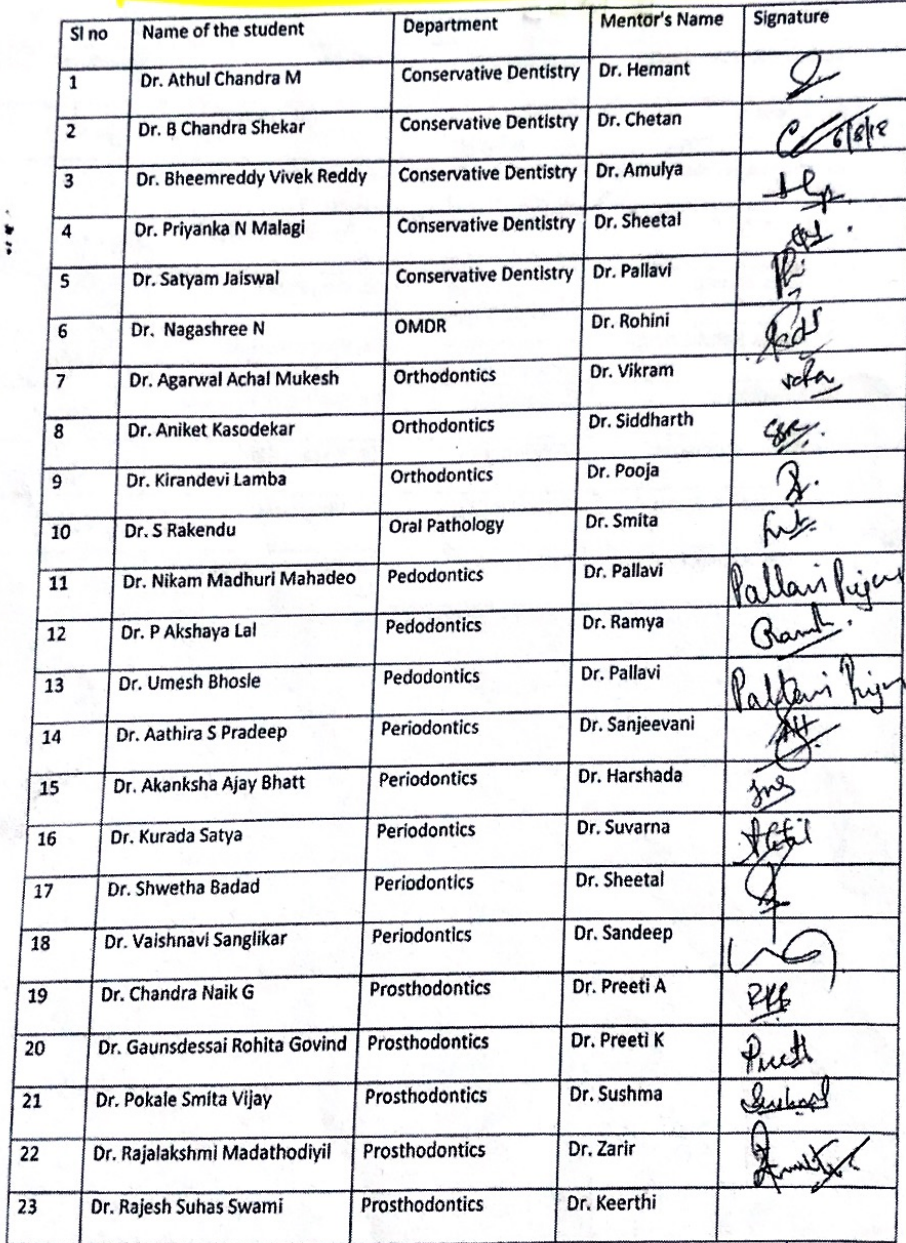 Sl no Name of the student Department Mentor's Name Signature
1 Dr. Athul Chandra M Conservative Dentistry Dr. Hemant
2 Dr. B Chandra Shekar Conservative Dentistry Dr. Chetan 6/8/18
3 Dr. Bheemreddy Vivek Reddy Conservative Dentistry Dr. Amulya
4 Dr. Priyanka N Malagi Conservative Dentistry Dr. Sheetal
5 Dr. Satyam Jaiswal Conservative Dentistry Dr. Pallavi
6 Dr. Nagashree N OMDR Dr. Rohini
7 Dr. Agarwal Achal Mukesh Orthodontics Dr. Vikram
8 Dr. Aniket Kasodekar Orthodontics Dr. Siddharth
9 Dr. Kirandevi Lamba Orthodontics Dr. Pooja
10 Dr. S Rakendu Oral Pathology Dr. Smita
11 Dr. Nikam Madhuri Mahadeo Pedodontics Dr. Pallavi Pallavi
12 Dr. P Akshaya Lal Pedodontics Dr. Ramya
13 Dr. Umesh Bhosle Pedodontics Dr. Pallavi Pallavi
14 Dr. Aathira S Pradeep Periodontics Dr. Sanjeevani
15 Dr. Akanksha Ajay Bhatt Periodontics Dr. Harshada
16 Dr. Kurada Satya Periodontics Dr. Suvarna
17 Dr. Shwetha Badad Periodontics Dr. Sheetal
18 Dr. Vaishnavi Sanglikar Periodontics Dr. Sandeep
19 Dr. Chandra Naik G Prosthodontics Dr. Preeti A
20 Dr. Gaunsdessai Rohita Govind Prosthodontics Dr. Preeti K Preeti
21 Dr. Pokale Smita Vijay Prosthodontics Dr. Sushma
22 Dr. Rajalakshmi Madathodiyil Prosthodontics Dr. Zarir
23 Dr. Rajesh Suhas Swami Prosthodontics Dr. Keerthi